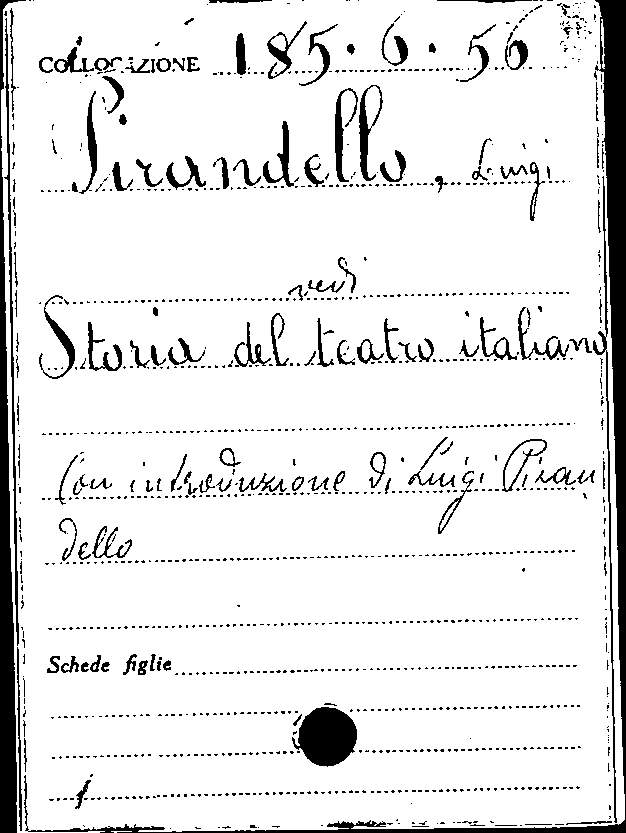 COLLOCAZIONE 185.6.56
Pirandello, Luigi
vedi
Storia del teatro italiano
Con introduzione di Luigi Piran
dello
Schede figlie
1